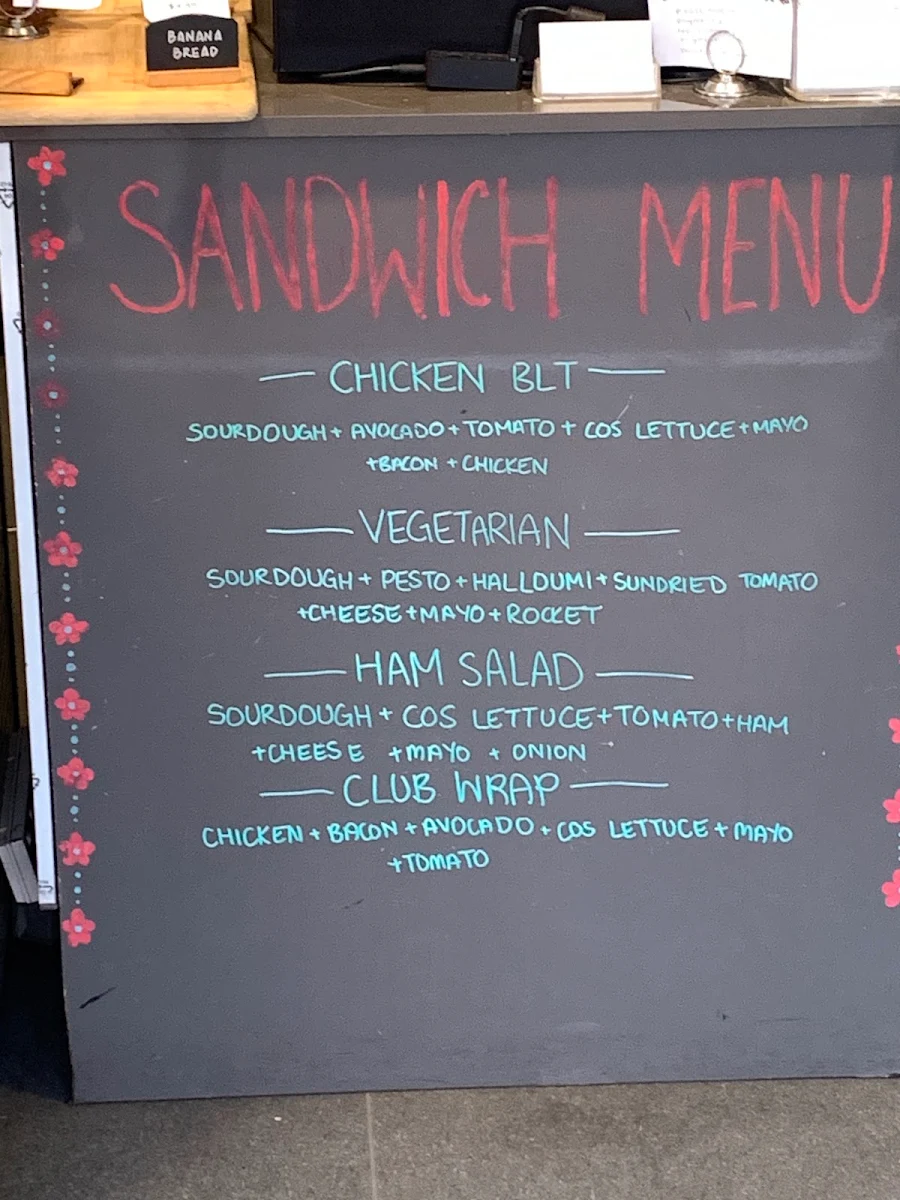 BANANA
BREAD
SANDWICH MENU
CHICKEN BLT
SOURDOUGH + AVOCADO + TOMATO + COS LETTUCE + MAYO
+BACON + CHICKEN
VEGETARIAN
SOURDOUGH + PESTO + HALLOUMI + SUNDRIED TOMATO
+CHEESE + MAYO + ROCKET
HAM SALAD
SOURDOUGH + COS LETTUCE + TOMATO + HAM
+CHEESE + MAYO + ONION
CLUB WRAP
CHICKEN + BACON + AVOCADO + COS LETTUCE + MAYO
+TOMATO